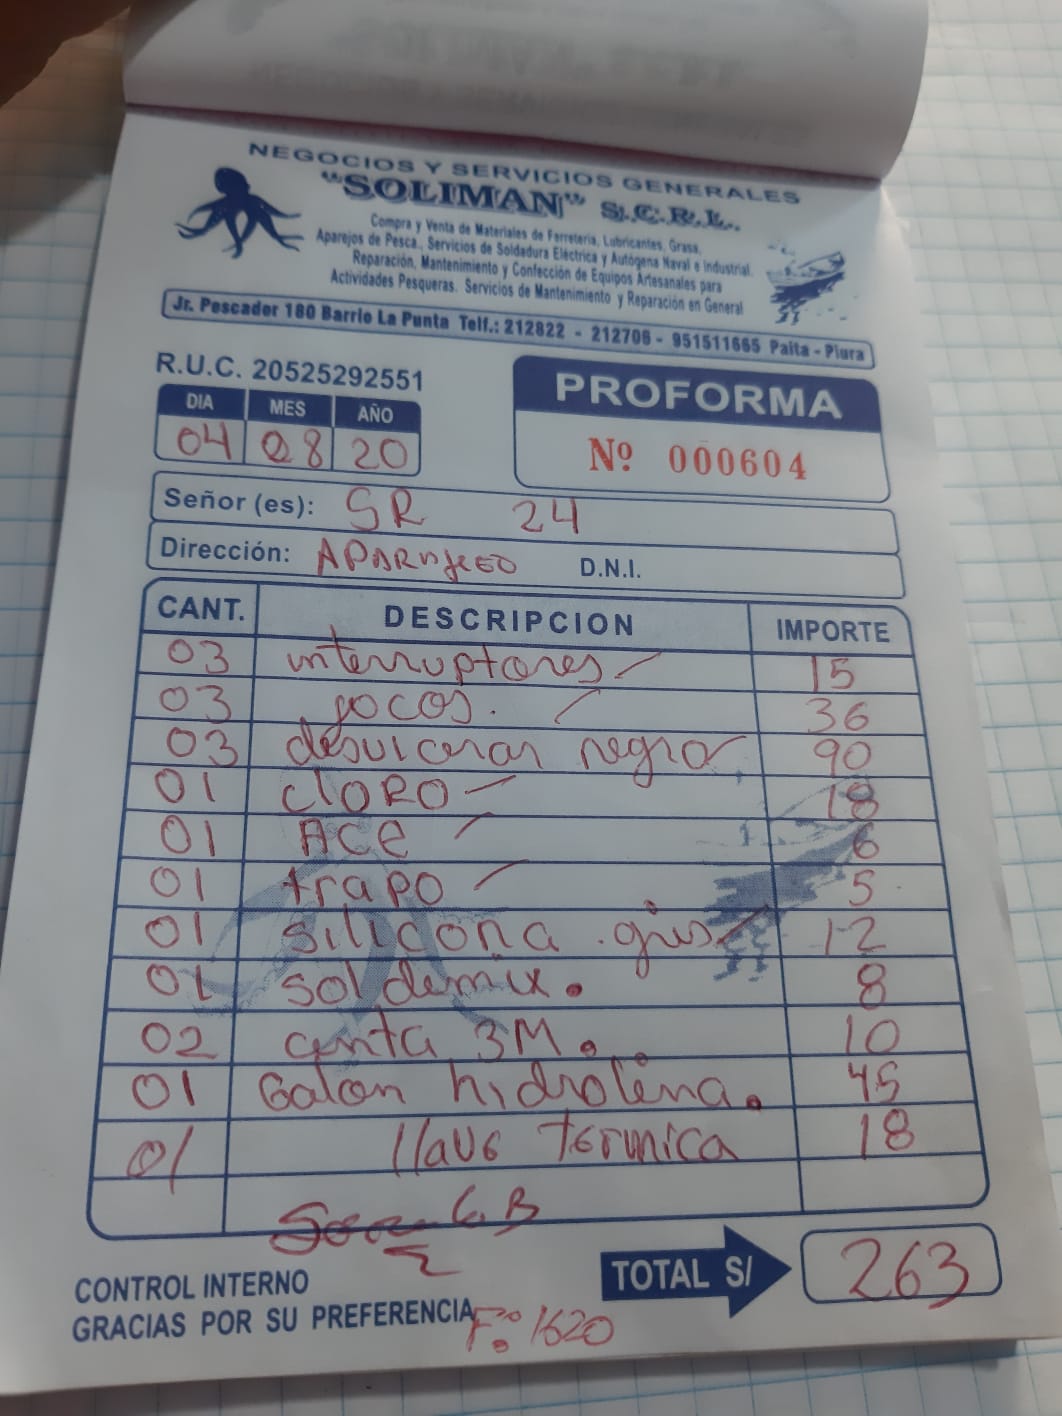 NEGOCIOS Y SERVICIOS GENERALES
"SOLIMAN" S.C.R.L.
Compra y Venta de Materiales de Ferretería, Lubricantes, Grasa,
Aparejos de Pesca., Servicios de Soldadura Eléctrica y Autógena Naval e Industrial.
Reparación, Mantenimiento y Confección de Equipos Artesanales para
Actividades Pesqueras. Servicios de Mantenimiento y Reparación en General
Jr. Pescador 180 Barrio La Punta Telf.: 212822 - 212706 - 951511665 Paita - Piura
R.U.C. 20525292551
PROFORMA
DIA MES AÑO
04 08 20
Nº 000604
Señor (es): SR 24
Dirección: D.N.I.
CANT. DESCRIPCION IMPORTE
03 interruptores 15
03 focos. 36
03 negro 90
01 CLORO 18
01 ACE 6
01 trapo 5
01 silicona gris 12
01 soldemix. 8
02 cinta 3M. 10
01 Galon hidrolina. 45
01 llave termica 18
G.B
TOTAL S/ 263
CONTROL INTERNO
GRACIAS POR SU PREFERENCIA
F: 1620